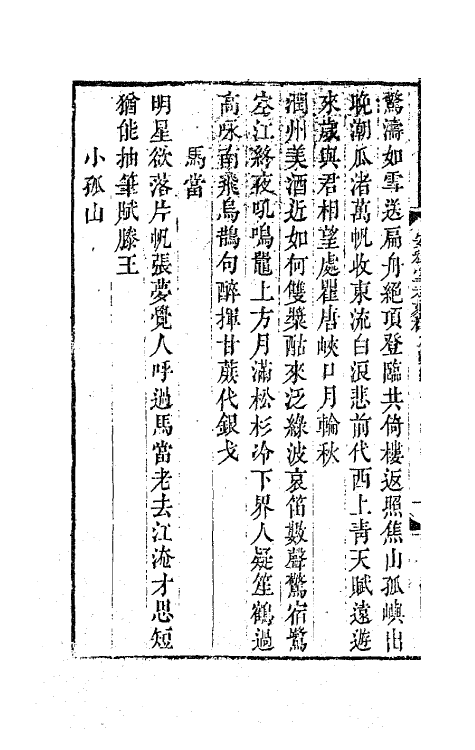 驚濤如雪送扁舟絕頂登臨共倚樓返照焦山孤嶼出
晚潮瓜渚萬帆收東流白浪悲前代西上青天賦遠遊
來歲與君相望處瞿唐峽口月輪秋
潤州美酒近如何雙槳酤來泛綠波哀笛數聲驚宿鷺
空江終夜吼鳴鼉上方月滿松杉冷下界人疑笙鶴過
高咏南飛烏鵲句醉揮甘蔗代銀戈
馬當
明星欲落片帆張夢覺人呼過馬當老去江淹才思短
猶能抽筆賦滕王
小孤山